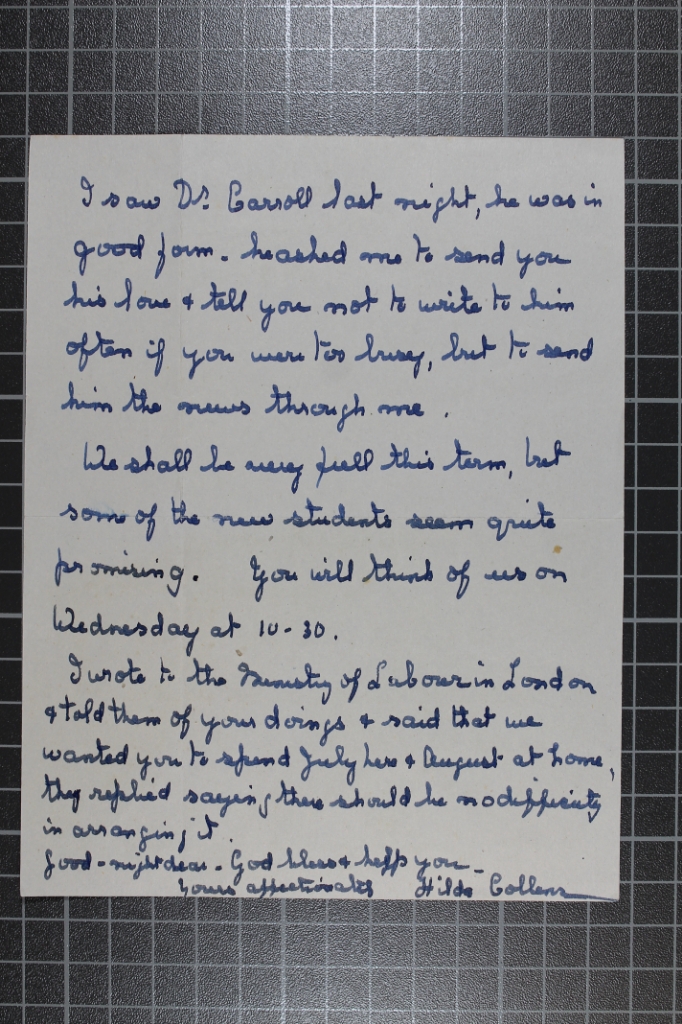 I saw Dr. Carroll last night, he was in
good form. he asked me to send you
his love & tell you not to write to him
often if you were too busy, but to send
him the news through me.
We shall be very full this term, but
some of the new students seem quite
promising. You will think of us on
Wednesday at 10-30.
I wrote to the Ministry of Labour in London
& told them of your doings & said that we
wanted you to spend July here & August at home,
they replied saying there should be no difficulty
in arranging it.
Good-night dear. God bless & help you -
Yours affectionately Hilda Collens